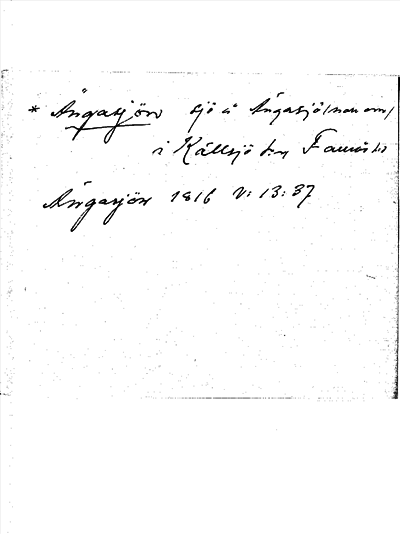 * Ängasjön sjö å Ängasjö (nan om)
i Källsjö sn Faurås hd
Ängasjön 1816 V: 13: 37